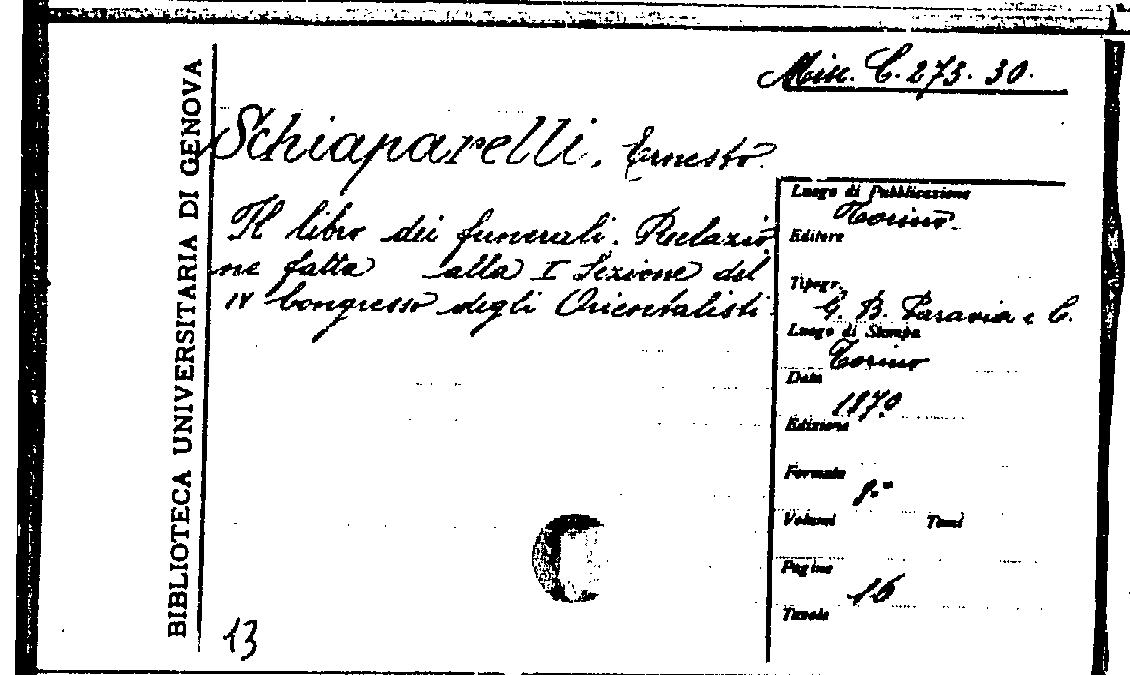 BIBLIOTECA UNIVERSITARIA DI GENOVA
Misc. C. 273. 30.
Schiaparelli, Ernesto.
Il libro dei funerali. Relazio
ne fatta alla I Sezione del
IV Congresso degli Orientalisti.
Luogo di Pubblicazione
Torino.
Editore
Tipogr.
G. B. Paravia e C.
Luogo di Stampa
Torino
Data
1879
Edizione
Formato
8.°
Volumi Tomi
Pagine
16
Tavole
13